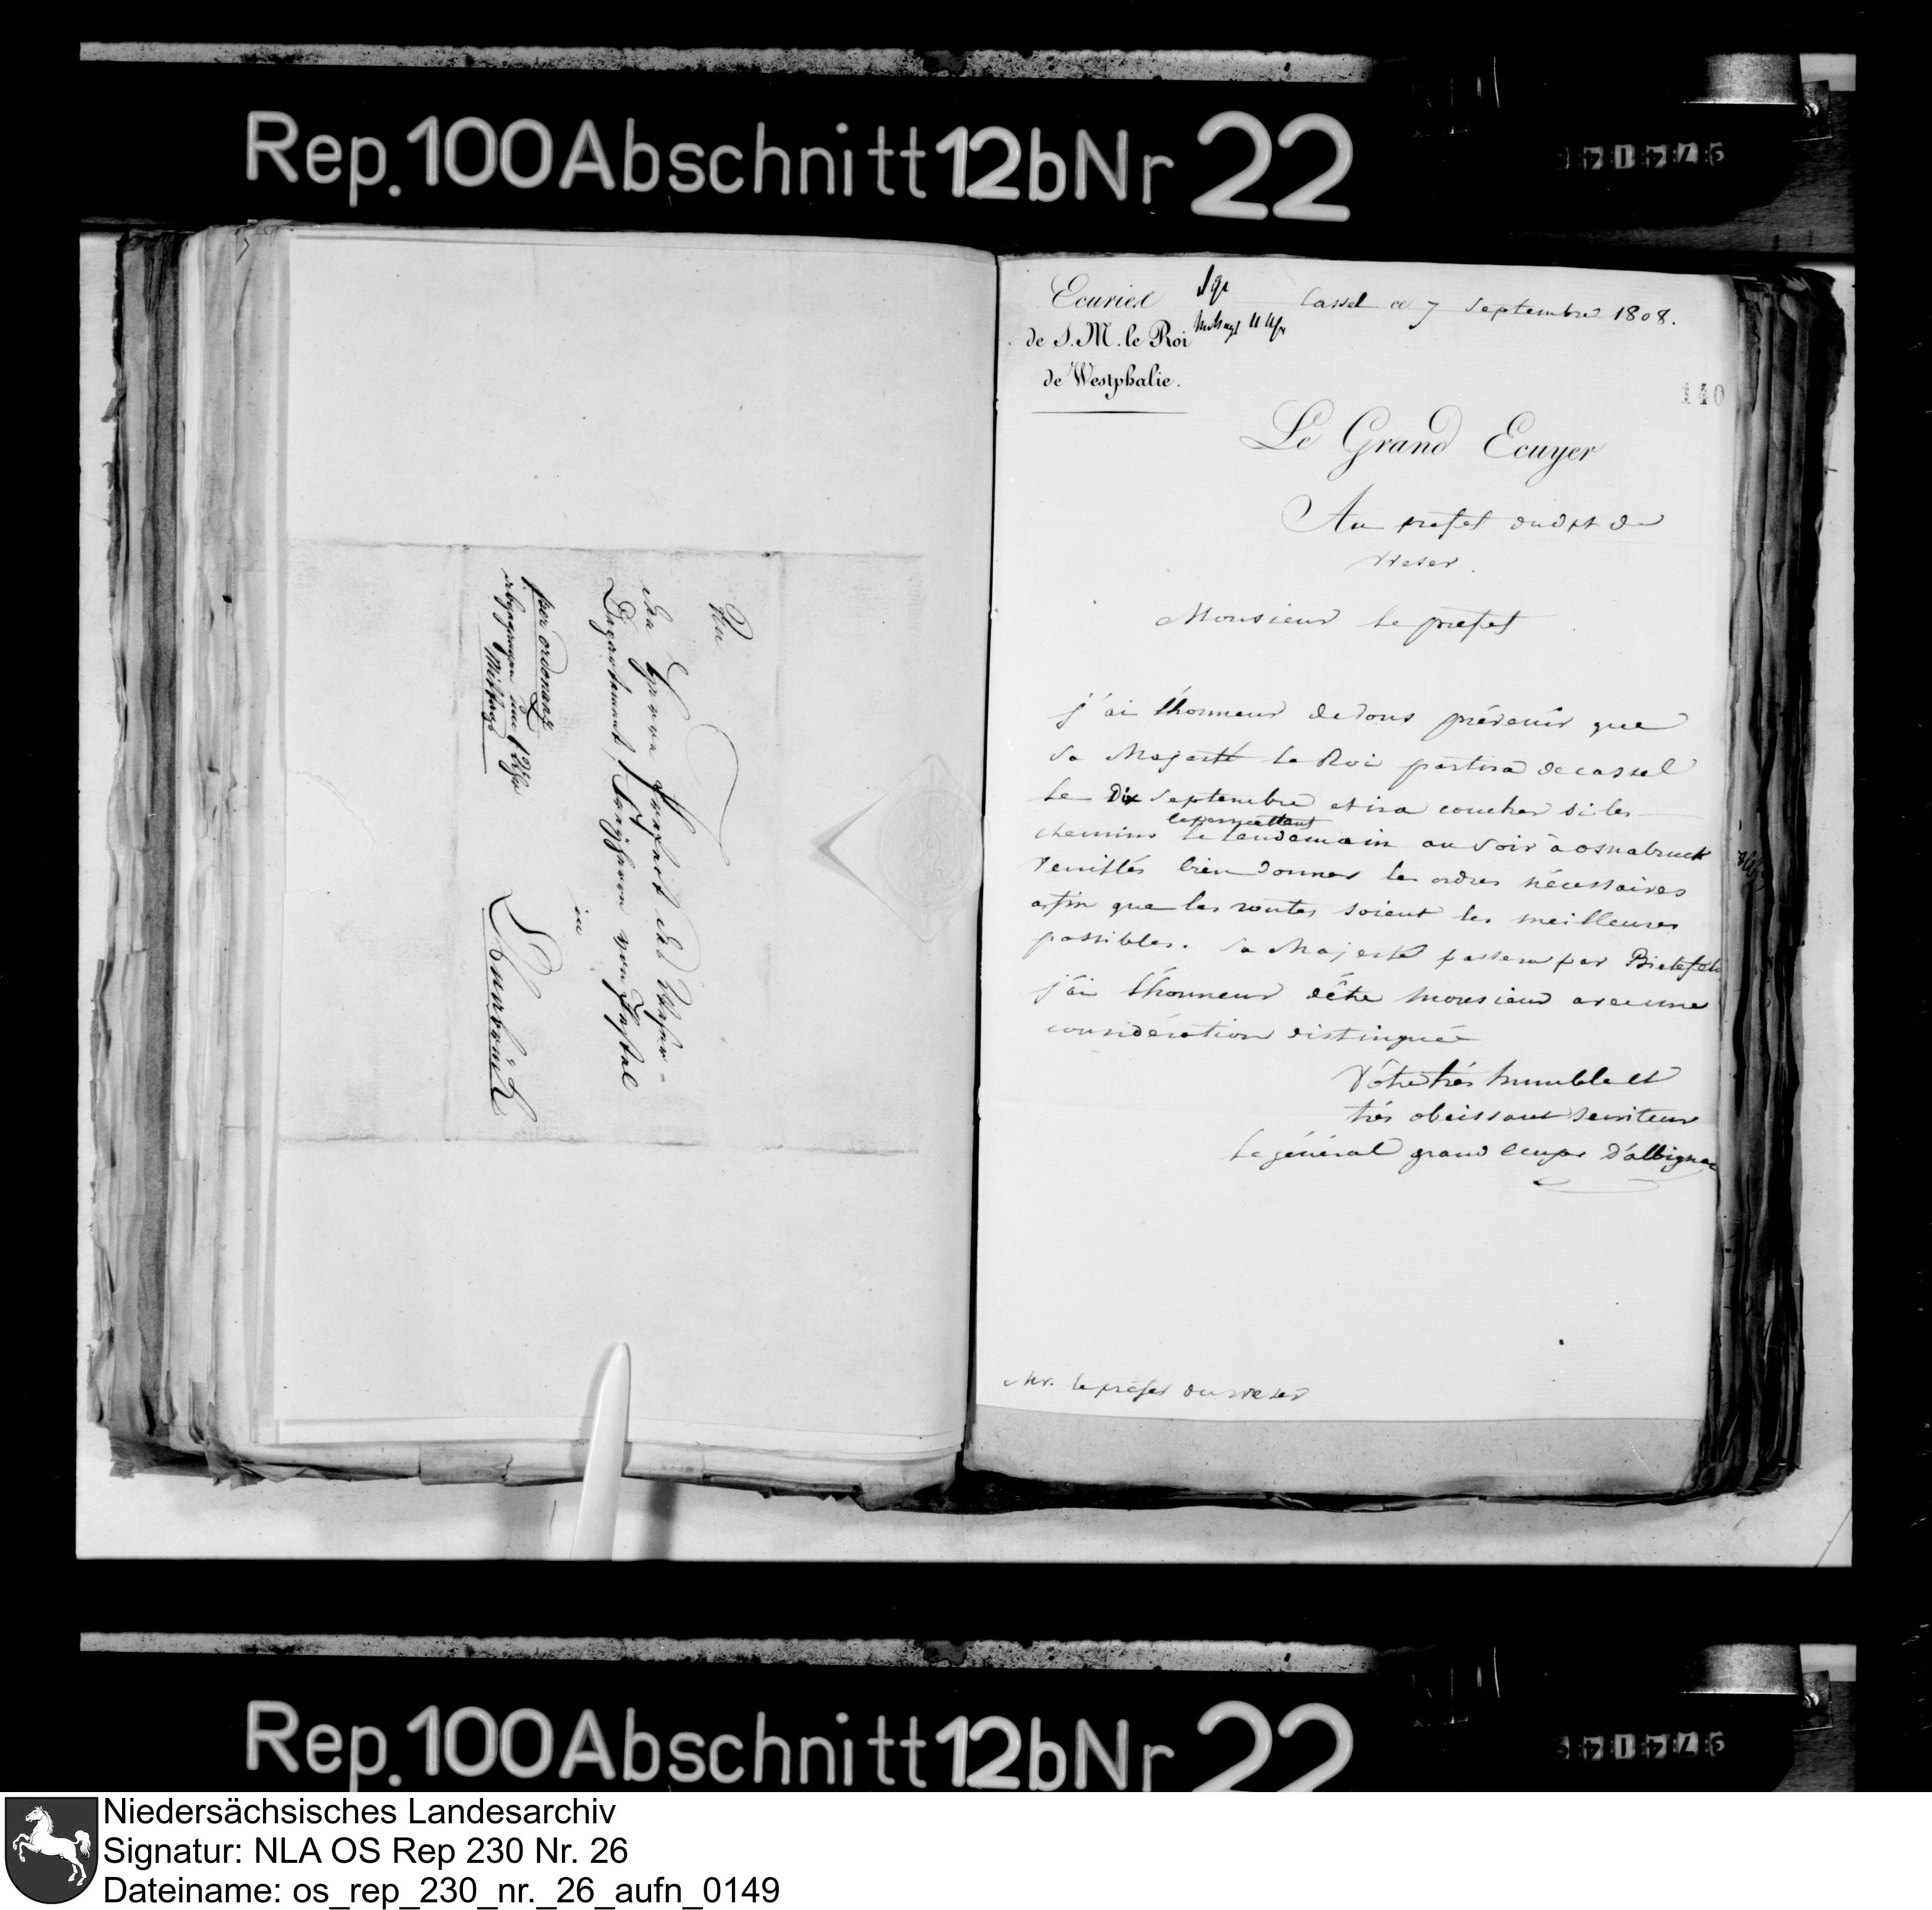 Rep. 100 Abschnitt 12b Nr 22
An
den Herrn Praefect des Weser-
Departement, Freyherrn von Pestel
in
Osnabrück
per ordonanz
abgegangen um 12 Uhr
Mittags
Ecuries
de S. M. le Roi
de Westphalie.
Cassel ce 7 Septembre 1808.
140
Le Grand Ecuyer
Au préfet du dpt du
Weser.
Monsieur le préfet
j'ai l'honneur de vous prévenir que
Sa Majesté le Roi partira de cassel
le Dix Septembre et ira coucher si les
chemins le permettent le lendemain au soir à osnabruck
Veuillés bien donner les ordres nécessaires
afin que les routes soient les meilleures
possibles. Sa Majesté passera par Bielefeld
j'ai l'honneur d'être Monsieur avec une
considération distinguée
Vôtre très humble et
très obeissant serviteur
le général grand Ecuyer D'albignac
Mr. le préfet du weser
Rep. 100 Abschnitt 12b Nr 22
Niedersächsisches Landesarchiv
Signatur: NLA OS Rep 230 Nr. 26
Dateiname: os_rep_230_nr._26_aufn_0149